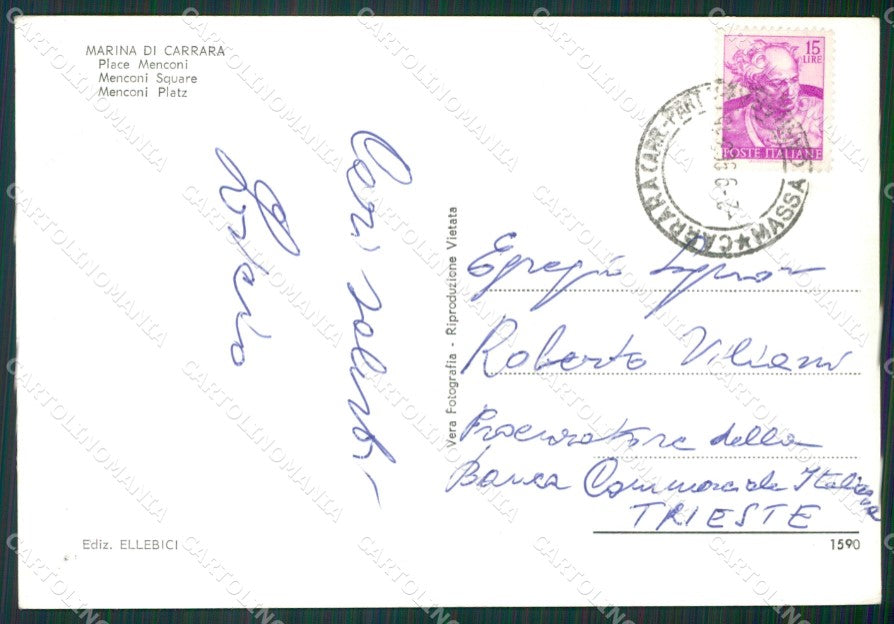 MARINA DI CARRARA
Place Menconi
Menconi Square
Menconi Platz
Cari saluti
Vera Fotografia - Riproduzione Vietata
15
LIRE
POSTE ITALIANE
CARRARA CARR.-PART
MASSA
Egregio Signor
Roberto Viliani
Procuratore della
Banca Commerciale Italiana
TRIESTE
Ediz. ELLEBICI
1590
CARTOLINOMANIA